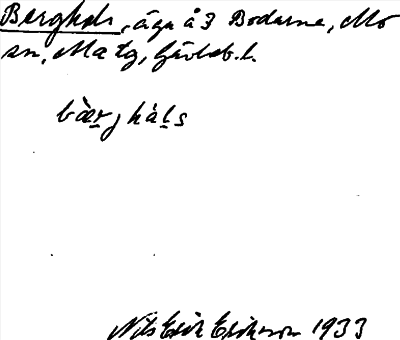 Berghals, äga å 3 Bodarne, Mo
sn, Ma tg, Gävleb. l.
bæ̀r̲j hál̲s
Nils Erik Eriksson 1933